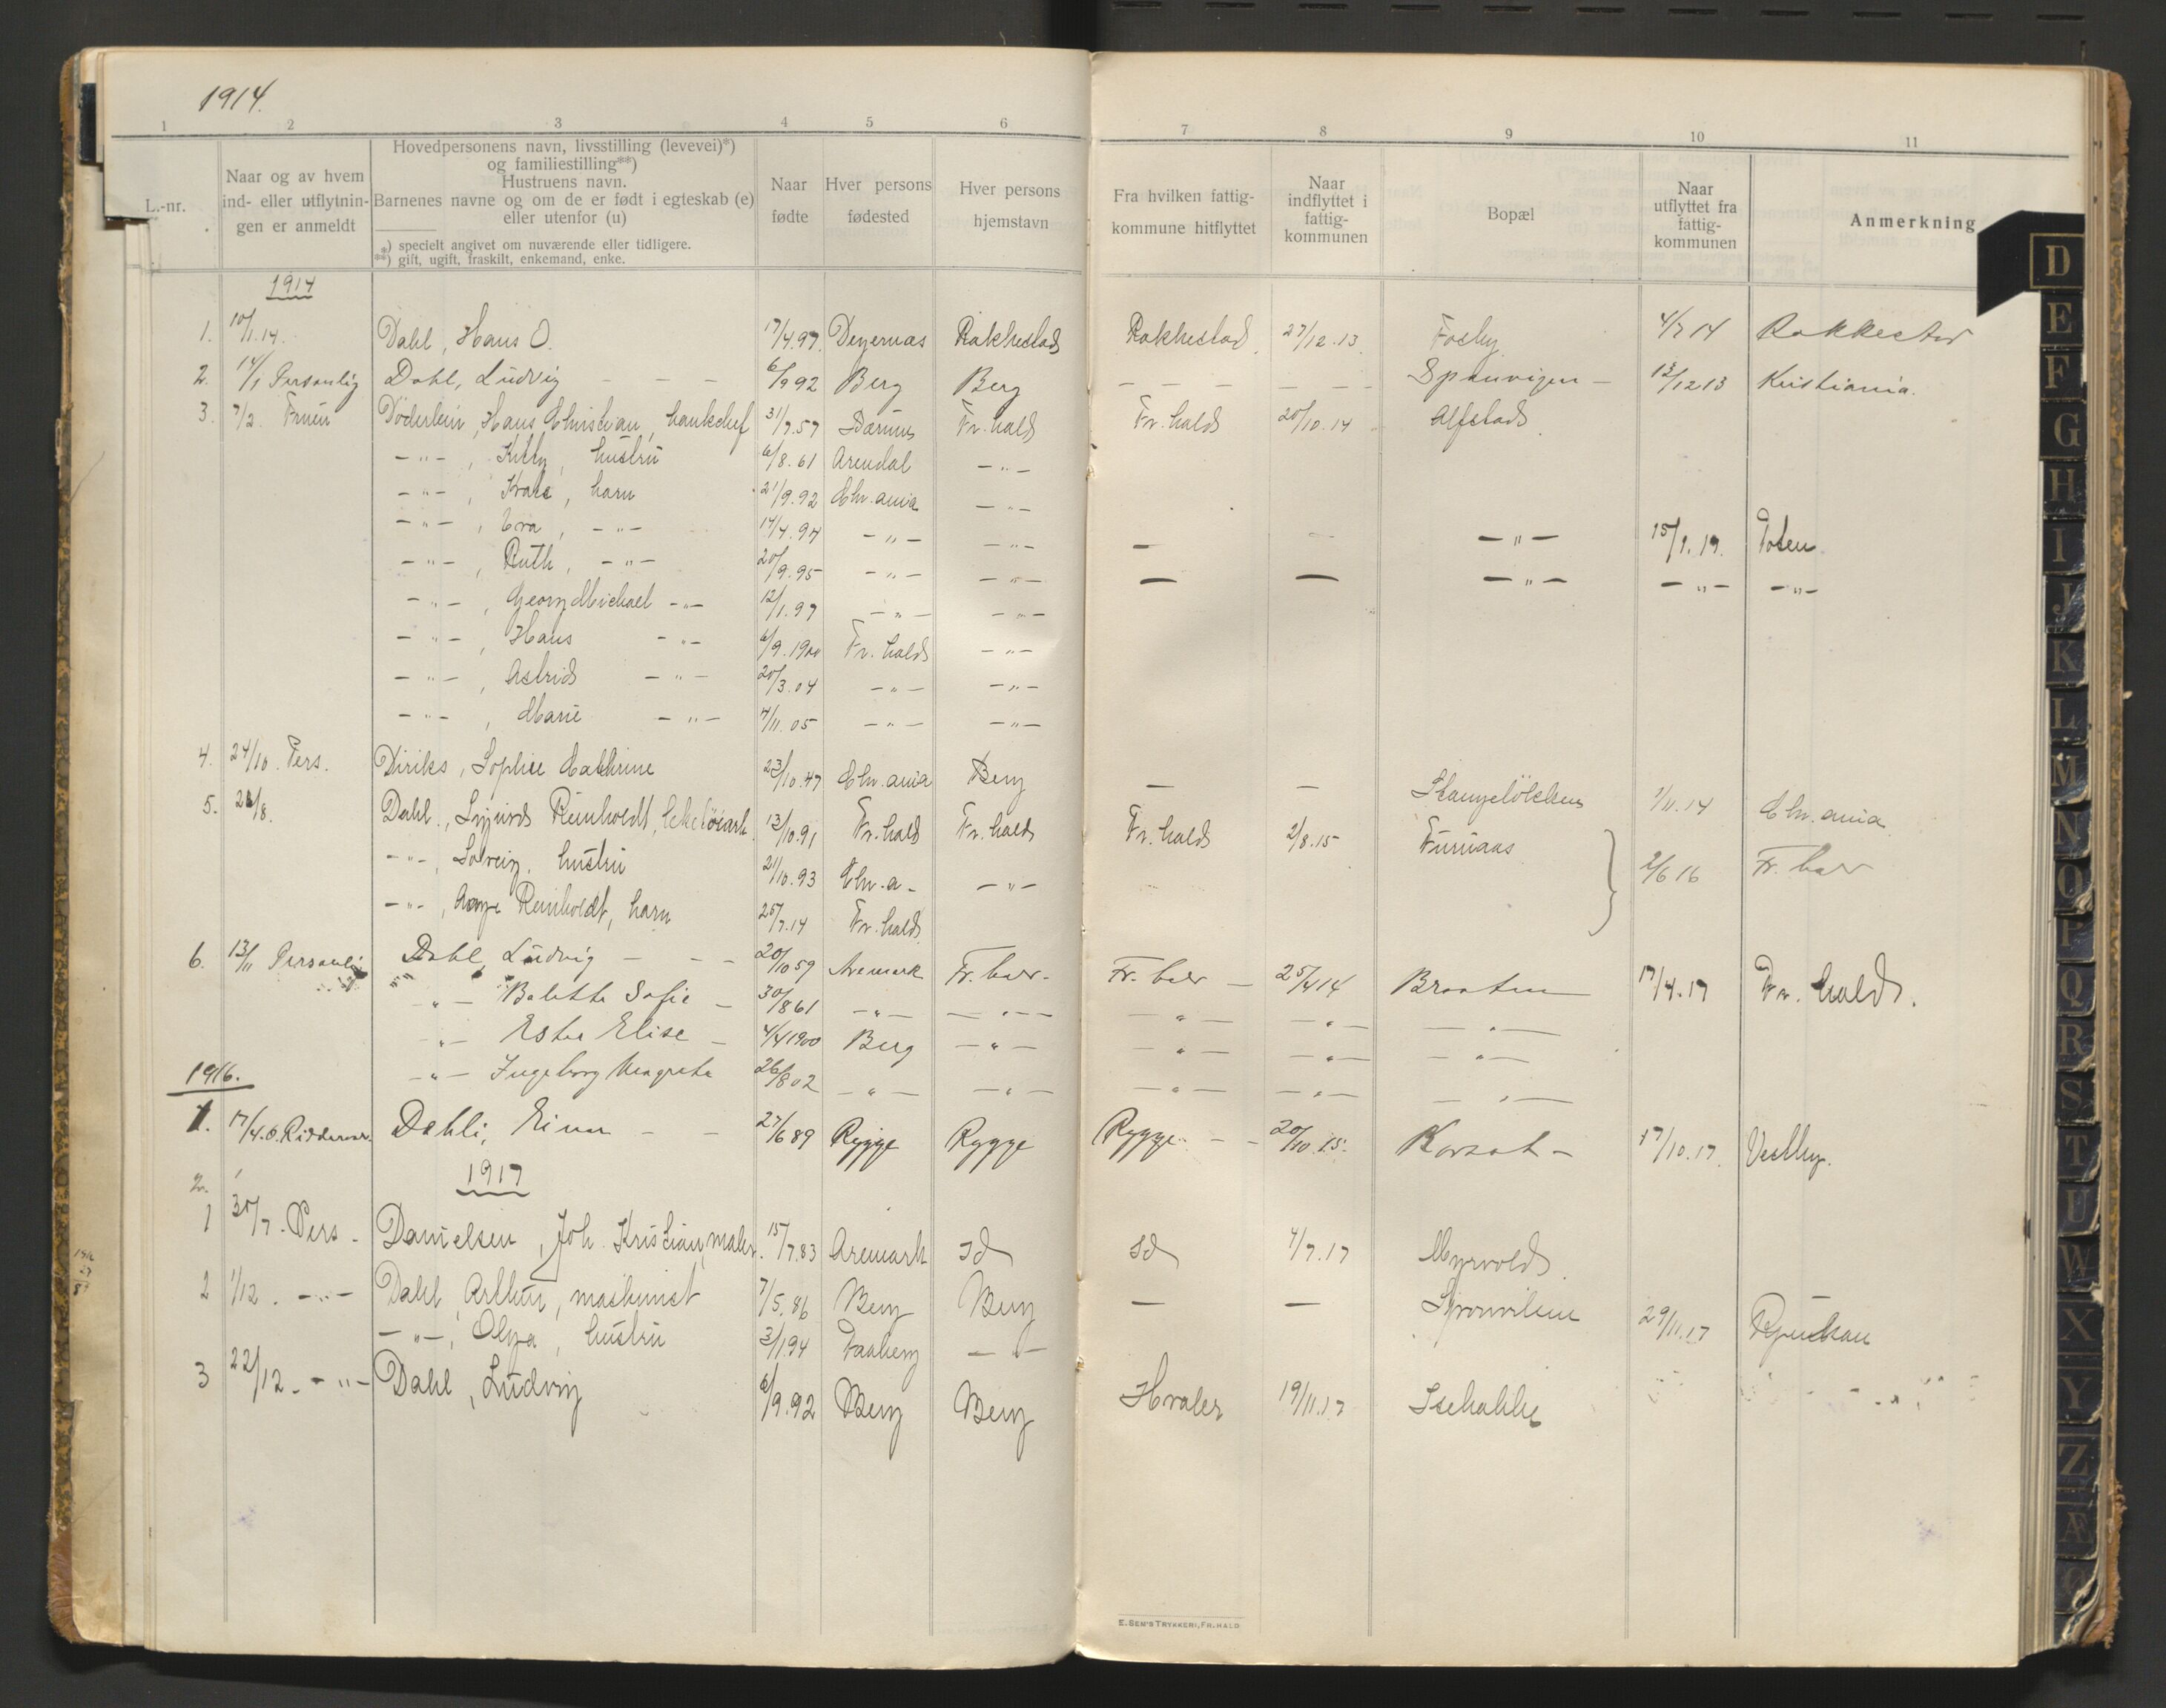 1914.
1 2 3 4 5 6 7 8 9 10 11
L.-nr.
Naar og av hvem ind- eller utflytnin-gen er anmeldt
Hovedpersonens navn, livsstilling (levevei)*)
og familiestilling**)
Hustruens navn.
Barnenes navne og om de er født i egteskab (e)
eller utenfor (u)
*) specielt angivet om nuværende eller tidligere.
**) gift, ugift, fraskilt, enkemand, enke.
Naar fødte
Hver persons fødested
Hver persons hjemstavn
Fra hvilken fattig-kommune hitflyttet
Naar indflyttet i fattig-kommunen
Bopæl
Naar utflyttet fra fattig-kommunen
Anmerkning
1914
1. 10/1.14. Dahl, Hans O. 17/4.97. Degernæs Rakkestad Rakkestad 27/12.13. Fosby 4/7 14 Rakkestad
2. 14/1 Personlig Dahl, Ludvig – – – 6/9 92 Berg Berg – – – – – – Sponvigen – 13/12 13 Kristiania.
3. 7/2. Fruen Döderlein, Hans Christian, banksjef 31/7.57 Fr. hald Fr. hald 20/10.14 Alfstad
–"–, Kitty, hustru 6/8.61 Arendal –"–
–"–, barn 21/9.92 Chr.ania –"–
–"–, Eva, –"– 14/4.94 –"– –"– – – –"– 15/1.19. Toten
–"–, Ruth, –"– 20/9.95 –"– –"– – – –"– –"– –"–
–"–, Georg Michael –"– 12/1.97 –"– –"–
–"–, Hans –"– 6/9.1900 Fr. hald –"–
–"–, Astrid –"– 20/3.04 –"– –"–
–"–, Marie –"– 4/11.05 –"– –"–
4. 24/10. Pers. Diriks, Sophie Cathrine 23/10.47 Chr.ania Berg – – Stangeløkken 1/11.14 Chr.ania
5. Dahl, Sigurd Reinholdt, 13/10.91 Fr. hald Fr. hald Fr. hald 2/8.15 Furuaas
–"–, Solveig, hustru 21/10.93 Chr.a– –"– 2/6 16 Fr. hald
–"–, Aage Reinholdt, barn 25/7.14 Fr. hald
6. 13/11 Personlig Dahl, Ludvig – – – 20/10 59 Aremark Fr. hald – Fr. hald – 25/4 14 Braaten 17/4.17 Fr. hald.
–"– Bolette Sofie – 30/8 61 –"– –"– –"– –"– –"–
–"– Ester Elise – 4/4 1900 Berg –"– –"– –"– –"–
–"– Ingeborg Margrete 26/8 02 –"– –"– –"– –"– –"–
1916.
1. 17/4. O. Dahli, Einar – – 27/6 89 Rygge Rygge Rygge – – 20/10.15. Korsat – 17/10.17. Vestby.
2.
1917
1 30/7. Pers. Danielsen, Joh. Kristian, maler. 15/7.83 Aremark Id Id 4/7.17 Myrvold
2 1/12. –"– Dahl, Arthur, maskinist 7/5.86 Berg Berg – – Sponviken 29/11.17 Rjukan
–"–, Olga, hustru 3/1 94 Faaberg –"–
3 22/12. –"– Dahl, Ludvig 6/9.92 Berg Berg Hvaler 19/11.17 Isebakke
E. SEM'S TRYKKERI, FR.HALD
D
E
F
G
H
I
J
K
L
M
N
O
P
Q
R
S
T
U
W
X
Y
Z
Æ
Ø